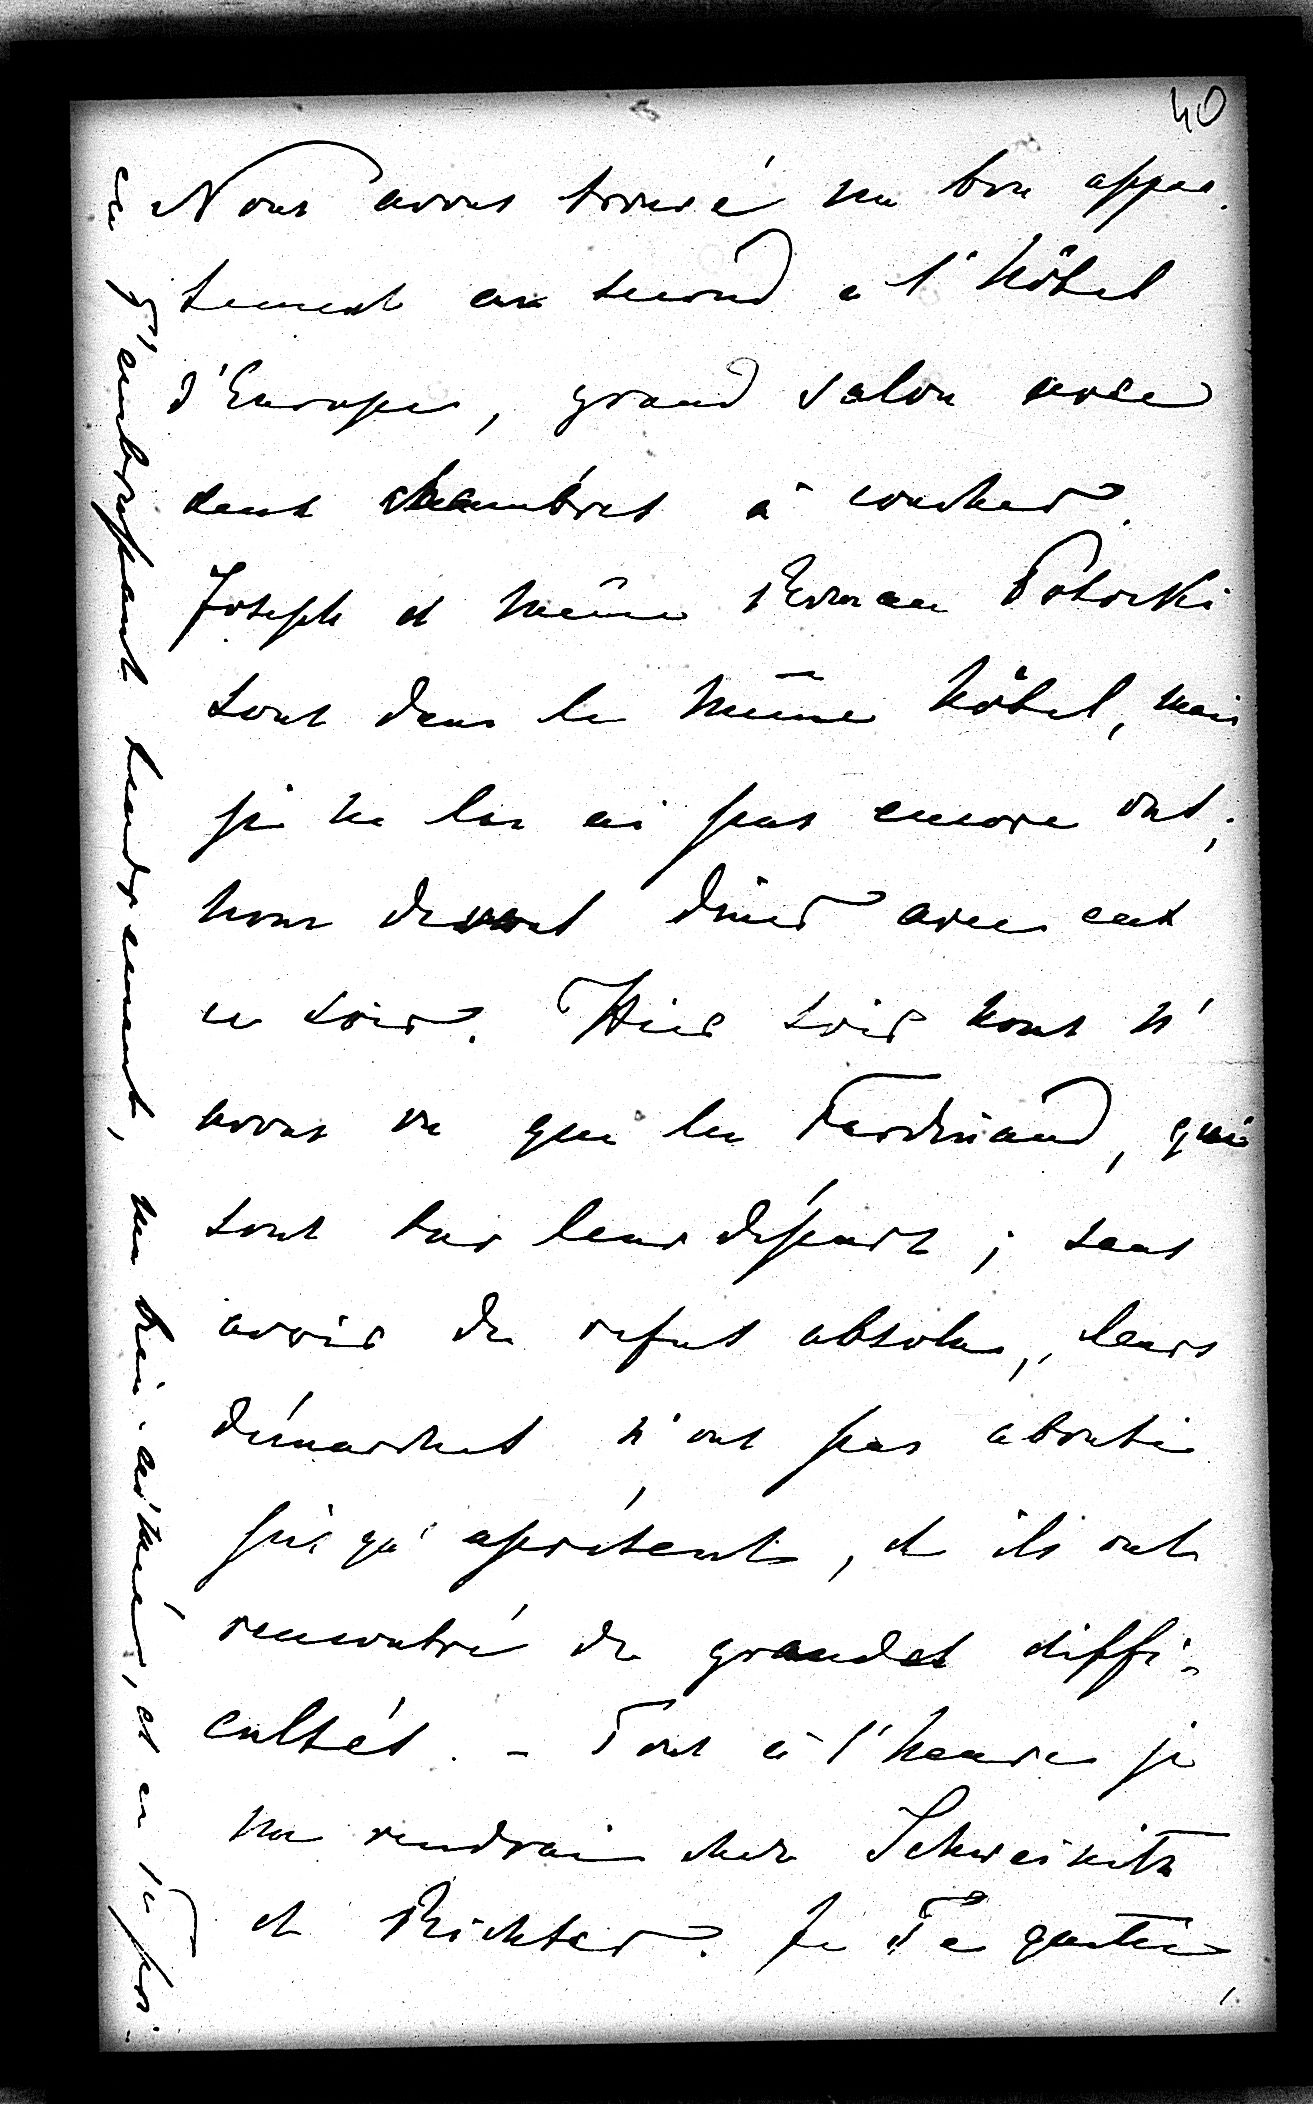 40
Nous avons trouvé un bon appar.
tement au second à l'hôtel
d'Europe, grand salon avec
deux chambres à coucher.
Joseph et même Roman Potocki
sont dans le même hôtel, mais
je ne les ai pas encore vus,
nous devons dîner avec eux
ce soir. Hier soir nous n'
avons vu que les Ferdinand, qui
sont sur leur départ ; sans
avoir de refus absolu, leurs
démarches n'ont pas abouti
jusqu'à présent, et ils ont
rencontré de grandes diffi-
cultés. – Tout à l'heure je
me rendrai chez Schweinitz
et Richter. Je Te quitte,
en T'embrassant tendrement,
ma bien-aimée, et en Te pri-